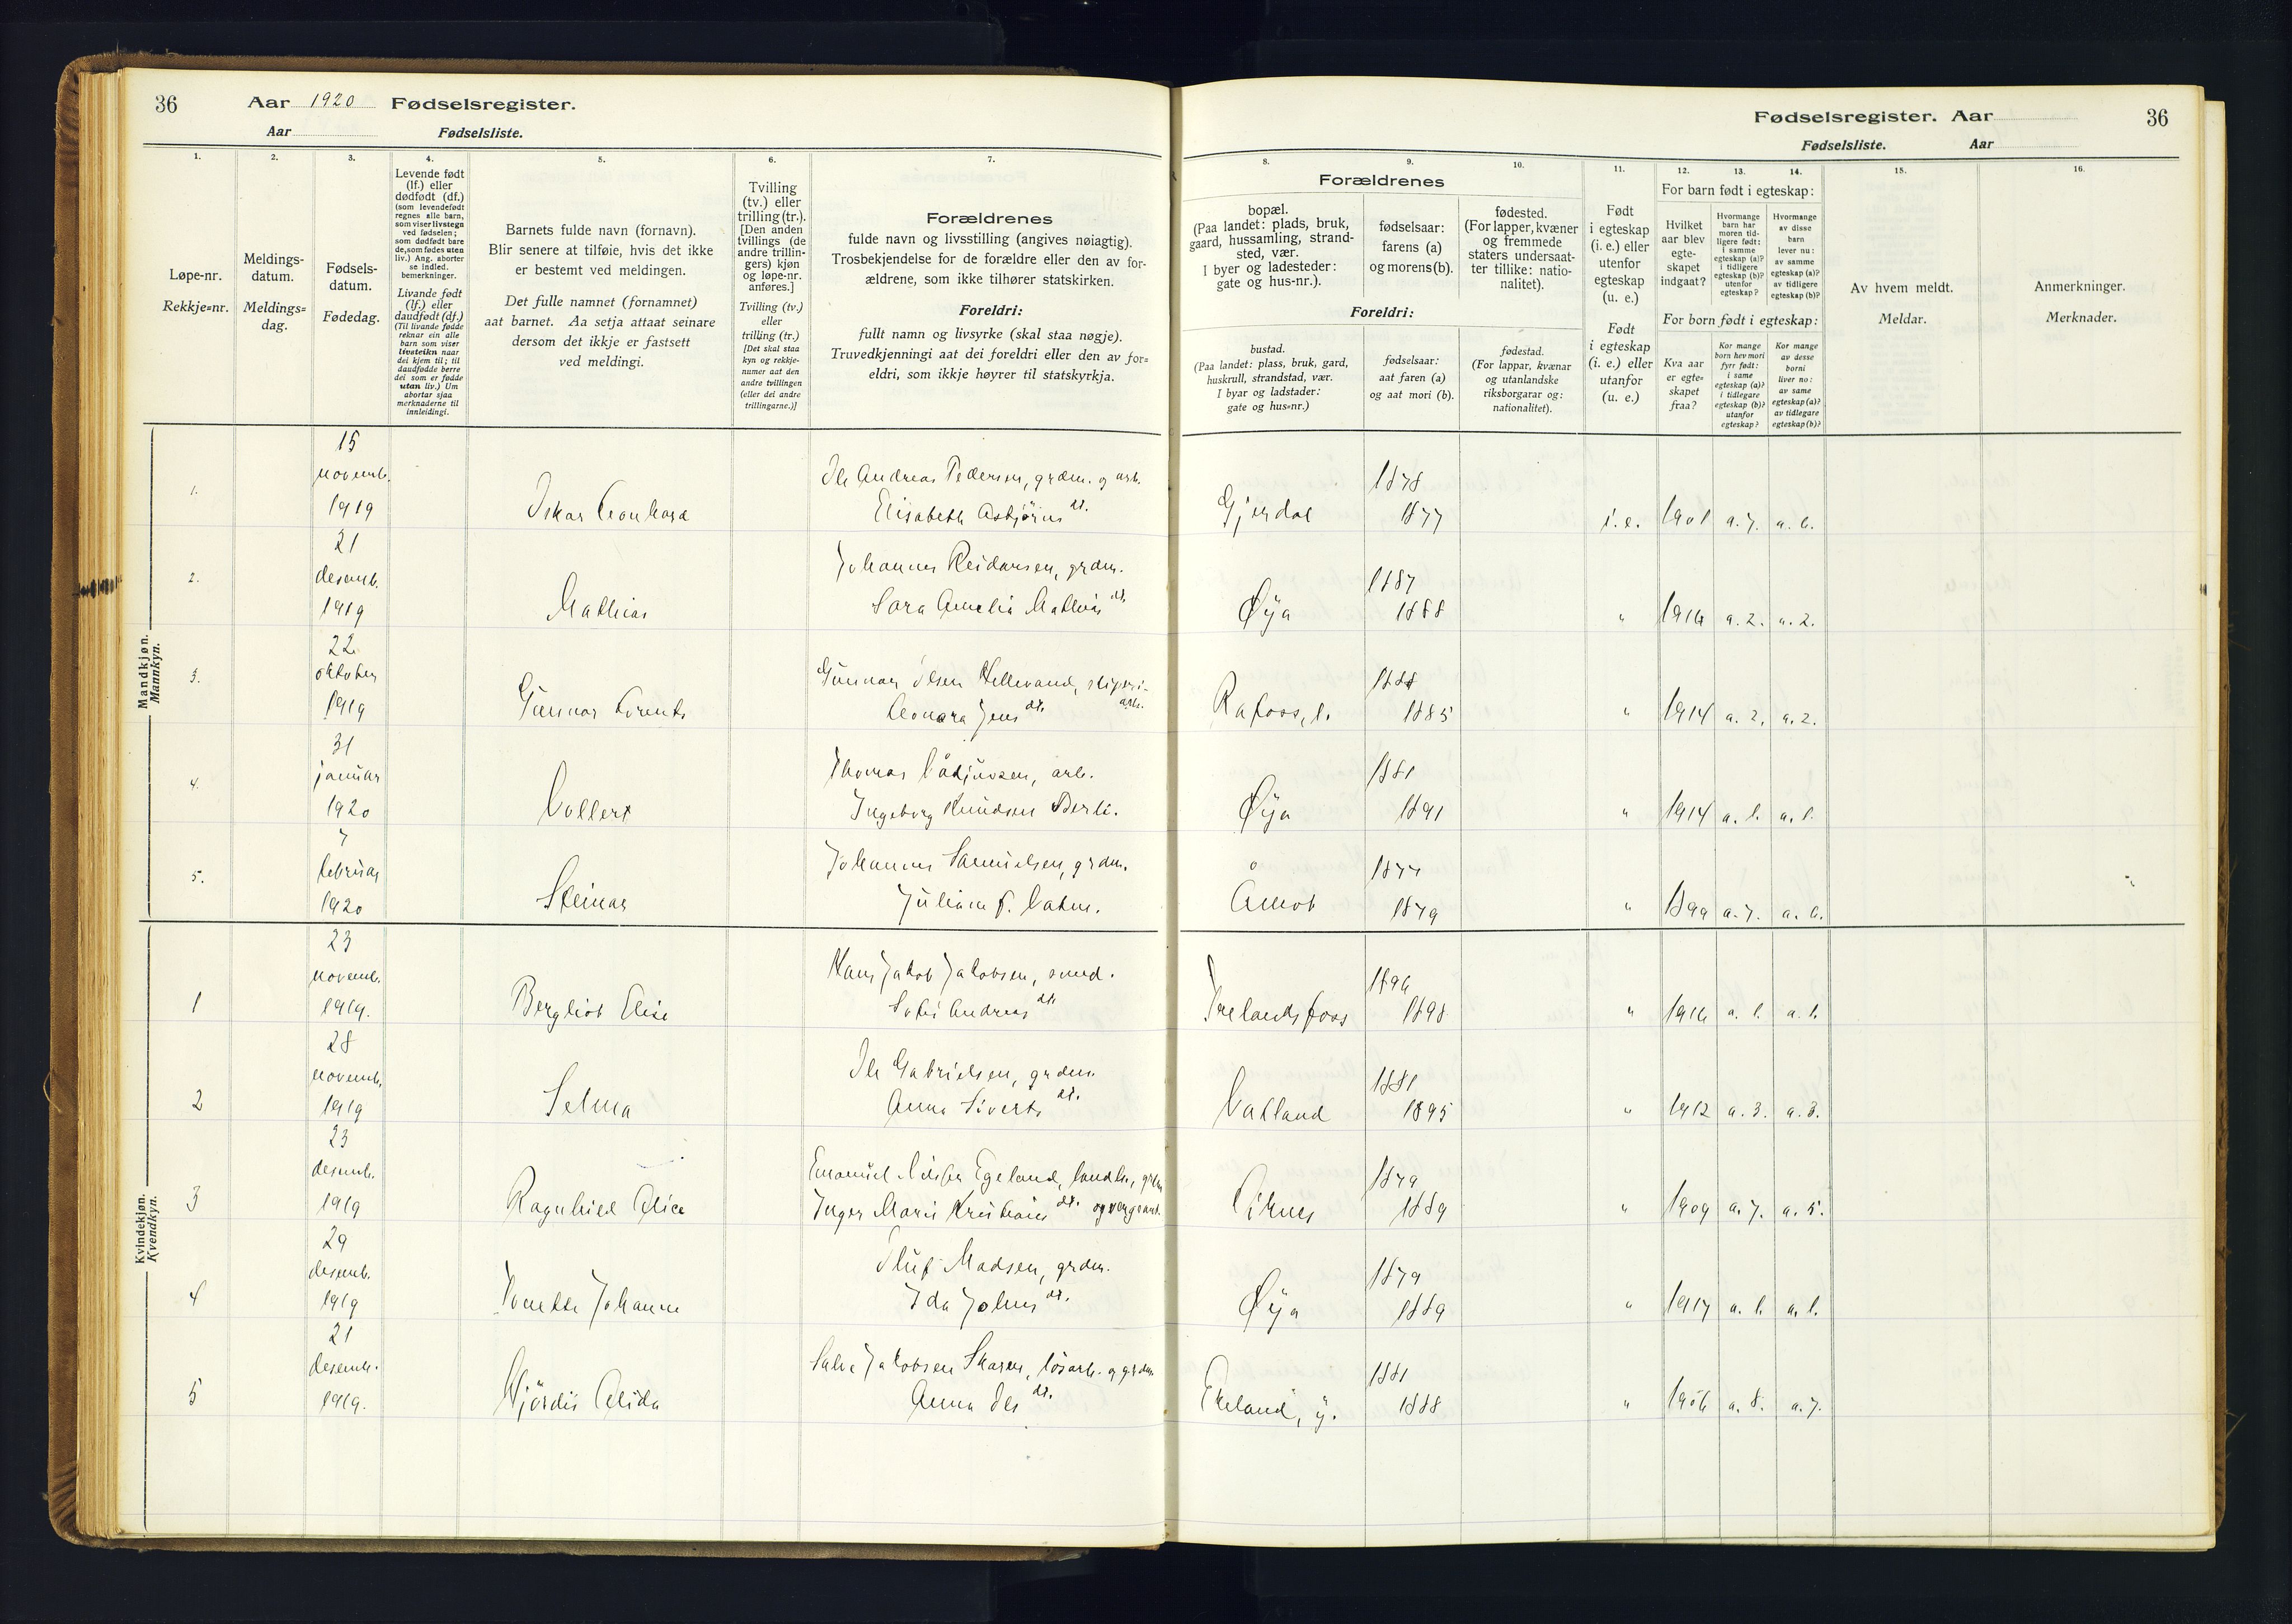 36
Aar 1920 Fødselsregister.
Aar Fødselsliste.
1.
2.
3.
4.
5.
6.
7.
Løpe-nr.
Rekkje=nr.
Meldings-
datum.
Meldings=
dag.
Fødsels-
datum.
Fødedag.
Levende født
(lf.) eller
dødfødt (df.)
(som levendefødt
regnes alle barn,
som viser livstegn
ved fødselen;
som dødfødt bare
de, som fødes uten
liv.) Ang. aborter
se indled.
bemerkninger.
Livande født
(lf.) eller
daudfødt (df.)
(Til livande fødde
reknar ein alle
barn som viser
livsteikn naar
dei kjem til; til
daudfødde berre
dei som er fødde
utan liv.) Um
abortar sjaa
merknaderne til
innleidingi.
Barnets fulde navn (fornavn).
Blir senere at tilføie, hvis det ikke
er bestemt ved meldingen.
Det fulle namnet (fornamnet)
aat barnet. Aa setja attaat seinare
dersom det ikkje er fastsett
ved meldingi.
Tvilling
(tv.) eller
trilling (tr.).
[Den anden
tvillings (de
andre trillin-
gers) kjøn
og løpe-nr.
anføres.]
Tvilling (tv.)
eller
trilling (tr.)
[Det skal staa
kyn og rekkje-
numer aat den
andre tvillingen
(eller dei andre
trillingarne.)]
Forældrenes
fulde navn og livsstilling (angives nøiagtig).
Trosbekjendelse for de forældre eller den av for-
ældrene, som ikke tilhører statskirken.
Foreldri:
fullt namn og livsyrke (skal staa nøgje).
Truvedkjenningi aat dei foreldri eller den av for=
eldri, som ikkje høyrer til statskyrkja.
Mandkjøn.
Mannkyn.
1.
15
novemb.
1919
Oskar Leonhard
Ole Andreas Pedersen, grdm. og arb.
Elisabeth Asbjørns dt.
2.
21
desemb.
1919
Mathias
Johannes Reidarsen, grdm.
Sara Amelia Mathias dt.
3.
22
oktober
1919
Gunnar Lorents
Gunnar Olsen Hellevand, sliperi-
arb.
Leonora Jens dt.
4.
31
januar
1920
Vollert
Thomas Vådjuvsen, arb.
Ingeborg Knudsen Berli.
5.
7
februar
1920
Steinar
Johannes Samuelsen, grdm.
Juliane f. Vatne.
Kvindekjøn.
Kvendkyn.
1
23
novemb.
1919.
Bergliot Elise
Hans Jakob Jakobsen, smed.
Sofie Andreas dt.
2
28
novemb.
1919
Selma
Ole Gabrielsen, grdm.
Anna Siverts dt.
3
23
desemb.
1919
Ragnhild Alice
Emanuel Nilsen Egeland, landh., grdm
Inger Marie Kristians dt. og vergearb.
4
29
desemb.
1919
Tonette Johanne
Oluf Madsen, grdm.
Ida Johns dt.
5
21
desemb.
1919.
Hjördis Alida
Salve Jakobsen Skaren, lösarb. og grdm
Anna Ols dt.
Fødselsregister. Aar 36
Fødselsliste. Aar
8.
9.
10.
11.
12.
13.
14.
15.
16.
Forældrenes
bopæl.
(Paa landet: plads, bruk,
gaard, hussamling, strand-
sted, vær.
I byer og ladesteder:
gate og hus-nr.).
fødselsaar:
farens (a)
og morens (b).
fødested.
(For lapper, kvæner
og fremmede
staters undersaat-
ter tillike: natio-
nalitet).
Foreldri:
bustad.
(Paa landet: plass, bruk, gard,
huskrull, strandstad, vær.
I byar og ladstader:
gate og hus=nr.)
fødselsaar:
aat faren (a)
og aat mori (b).
fødestad.
(For lappar, kvænar
og utanlandske
riksborgarar og:
nationalitet).
Født
i egteskap
(i. e.) eller
utenfor
egteskap
(u. e.)
Født
i egteskap
(i. e.) eller
utanfor
(u. e.)
For barn født i egteskap:
Hvilket
aar blev
egte-
skapet
indgaat?
Hvormange
barn har
moren tid-
ligere født:
i samme
egteskap (a)?
i tidligere
egteskap (b)?
utenfor
egteskap?
Hvormange
av disse
barn
lever nu:
av samme
egteskap (a)?
av tidligere
egteskap (b)?
For born født i egteskap:
Kva aar
er egte=
skapet
fraa?
Kor mange
born hev mori
fyrr født:
i same
egteskap (a)?
i tidlegare
egteskap (b)?
utanfor
egteskap?
Kor mange
av desse
borni
liver no:
av same
egteskap (a)?
av tidlegare
egteskap (b)?
Av hvem meldt.
Meldar.
Anmerkninger.
Merknader.
Gjerdal 1878 1877 i. e. 1901 a. 7. a. 6.
Øya 1887 1888 " 1916 a. 2. a. 2.
Rafoss, l. 1888 1885 " 1914 a. 2. a. 2.
Øya 1881 1891 " 1914 a. 1. a. 1.
Åmot 1877 1879 " 1899 a. 7. a. 6.
Trelandsfoss 1896 1898 " 1916 a. 1. a. 1.
Vatland 1881 1895 " 1912 a. 3. a. 3.
1879 1889 " 1909 a. 7. a. 5.
Øya 1879 1889 " 1917 a. 1. a. 1.
Eikeland, y. 1881 1888 " 1906 a. 8. a. 7.